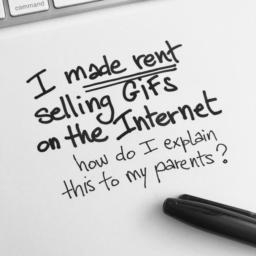 command
I made rent
selling GIFs
on the Internet
how do I explain
this to my parents?